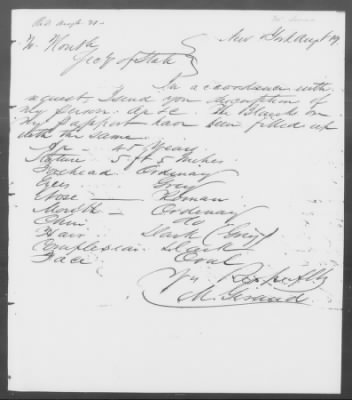 Recd Augt 20
New York Augt 19
To Honble
Secy of State
In accordance with
request, I send you description of
my person. Age &c. The Blanks on
my Passport have been filled up
with the same.
Age — 45 Years
Stature 5 ft 5 inches
Forehead Ordenay
Eyes Grey
Nose — Roman
Mouth — Ordenay
Chin do
Hair Dark (Grey)
Complexion Dark
Face Oval
Yrs Respectfully
M. Giraud